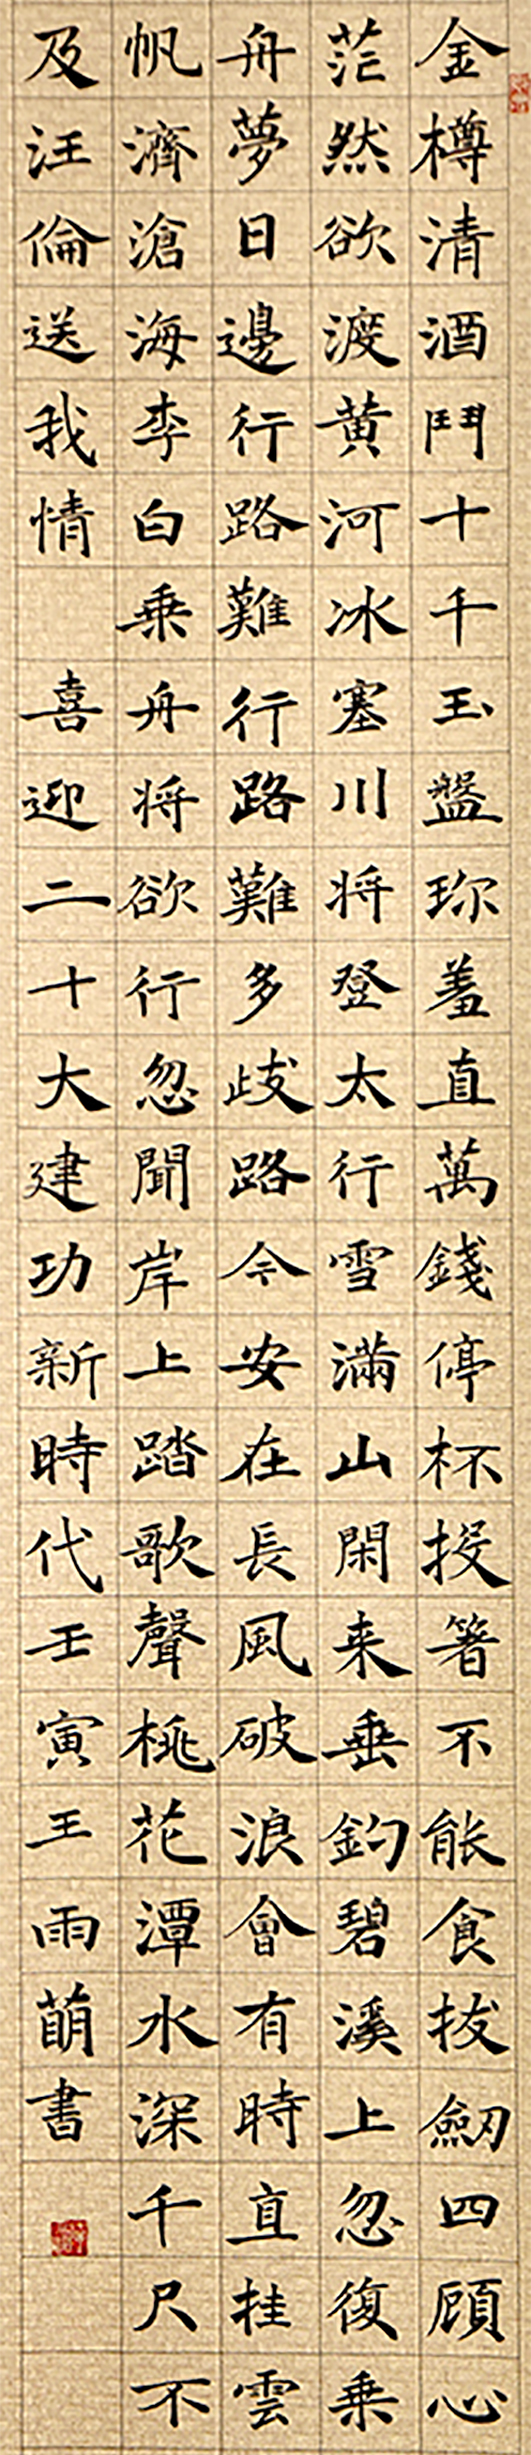 金樽清酒鬥十千玉盤珎羞直萬錢停杯投箸不能食拔劒四顧心
茫然欲渡黄河冰塞川将登太行雪滿山閑来垂釣碧溪上忽復乘
舟夢日邊行路難行路難多歧路今安在長風破浪會有時直挂雲
帆濟滄海李白乘舟将欲行忽聞岸上踏歌聲桃花潭水深千尺不
及汪倫送我情 喜迎二十大建功新時代壬寅王雨萌書